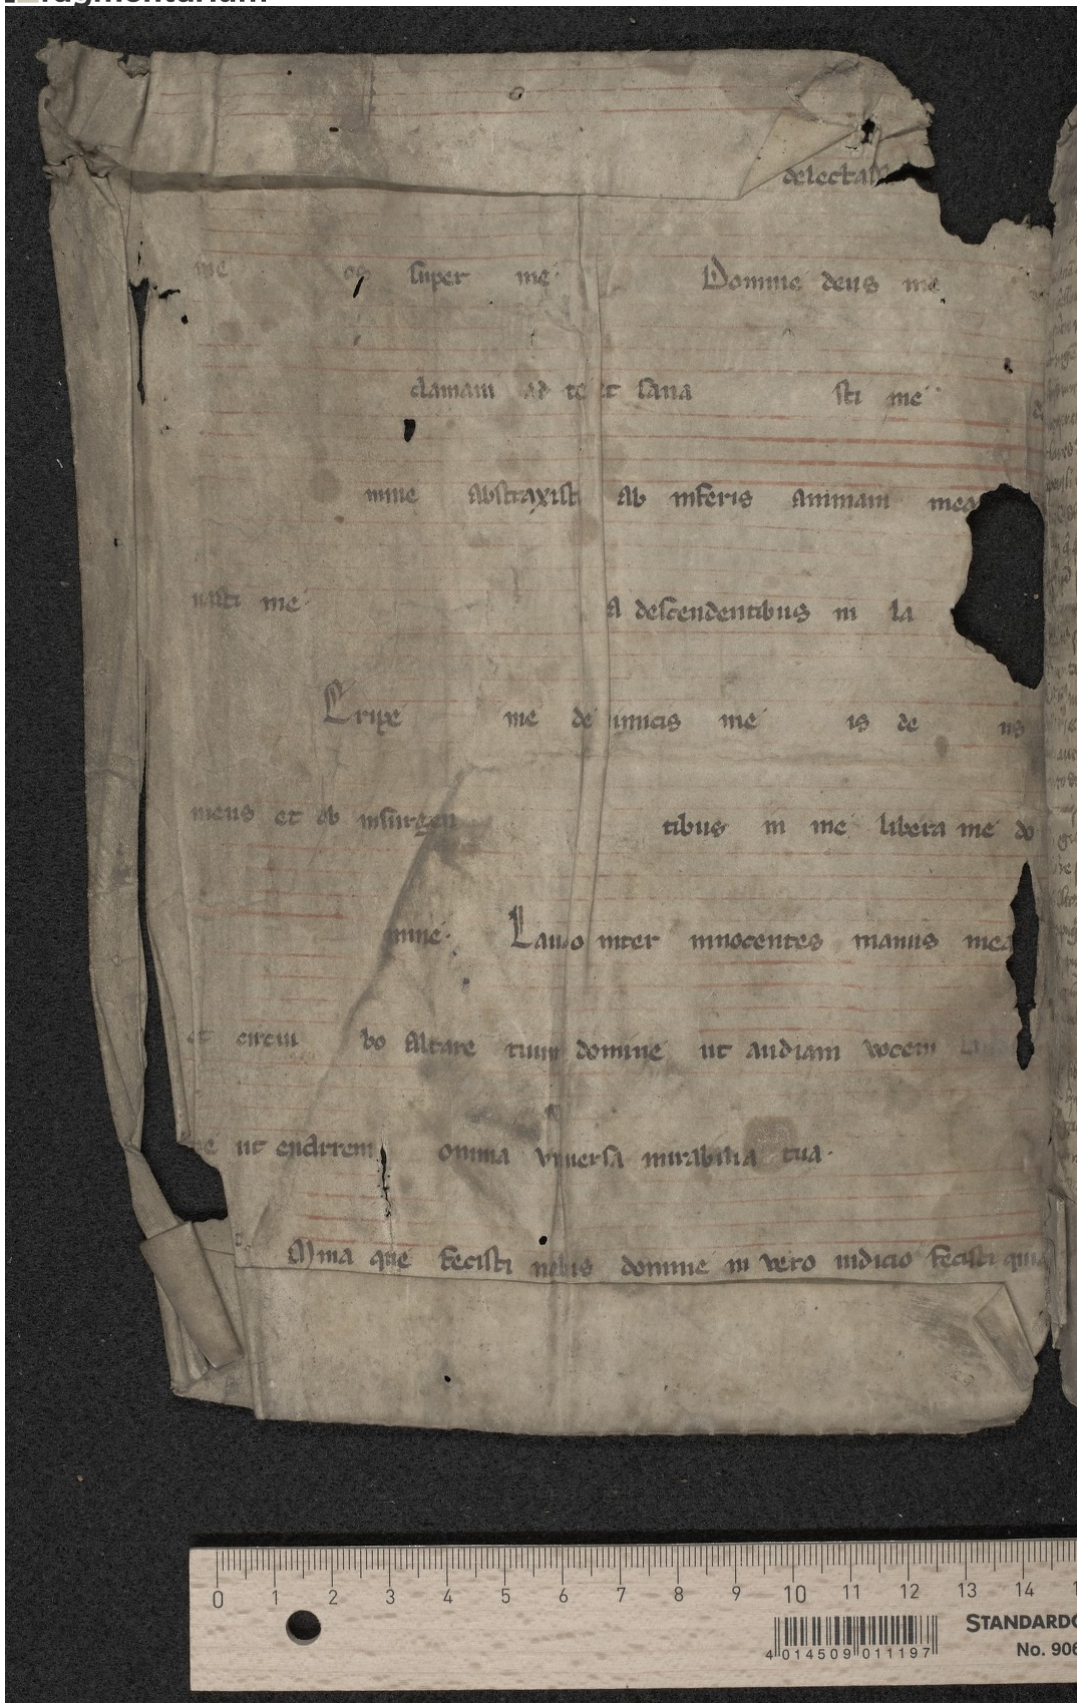 delectasti
me os super me Domine deus me
clamaui ad te et sana sti me
mine abstraxisti ab inferis animam mea
uasti me A descendentibus in la
Eripe me de inimicis me is de us
meus et ab insurgen tibus in me libera me do
mine. Lauabo inter innocentes manus mea
et circun bo altare tuum domine ut audiam vocem
ut enarrem omnia vniuersa mirabilia tua.
Omnia que fecisti nobis domine in vero iudicio fecisti quia
0 1 2 3 4 5 6 7 8 9 10 11 12 13 14
4 014509 011197
No. 906